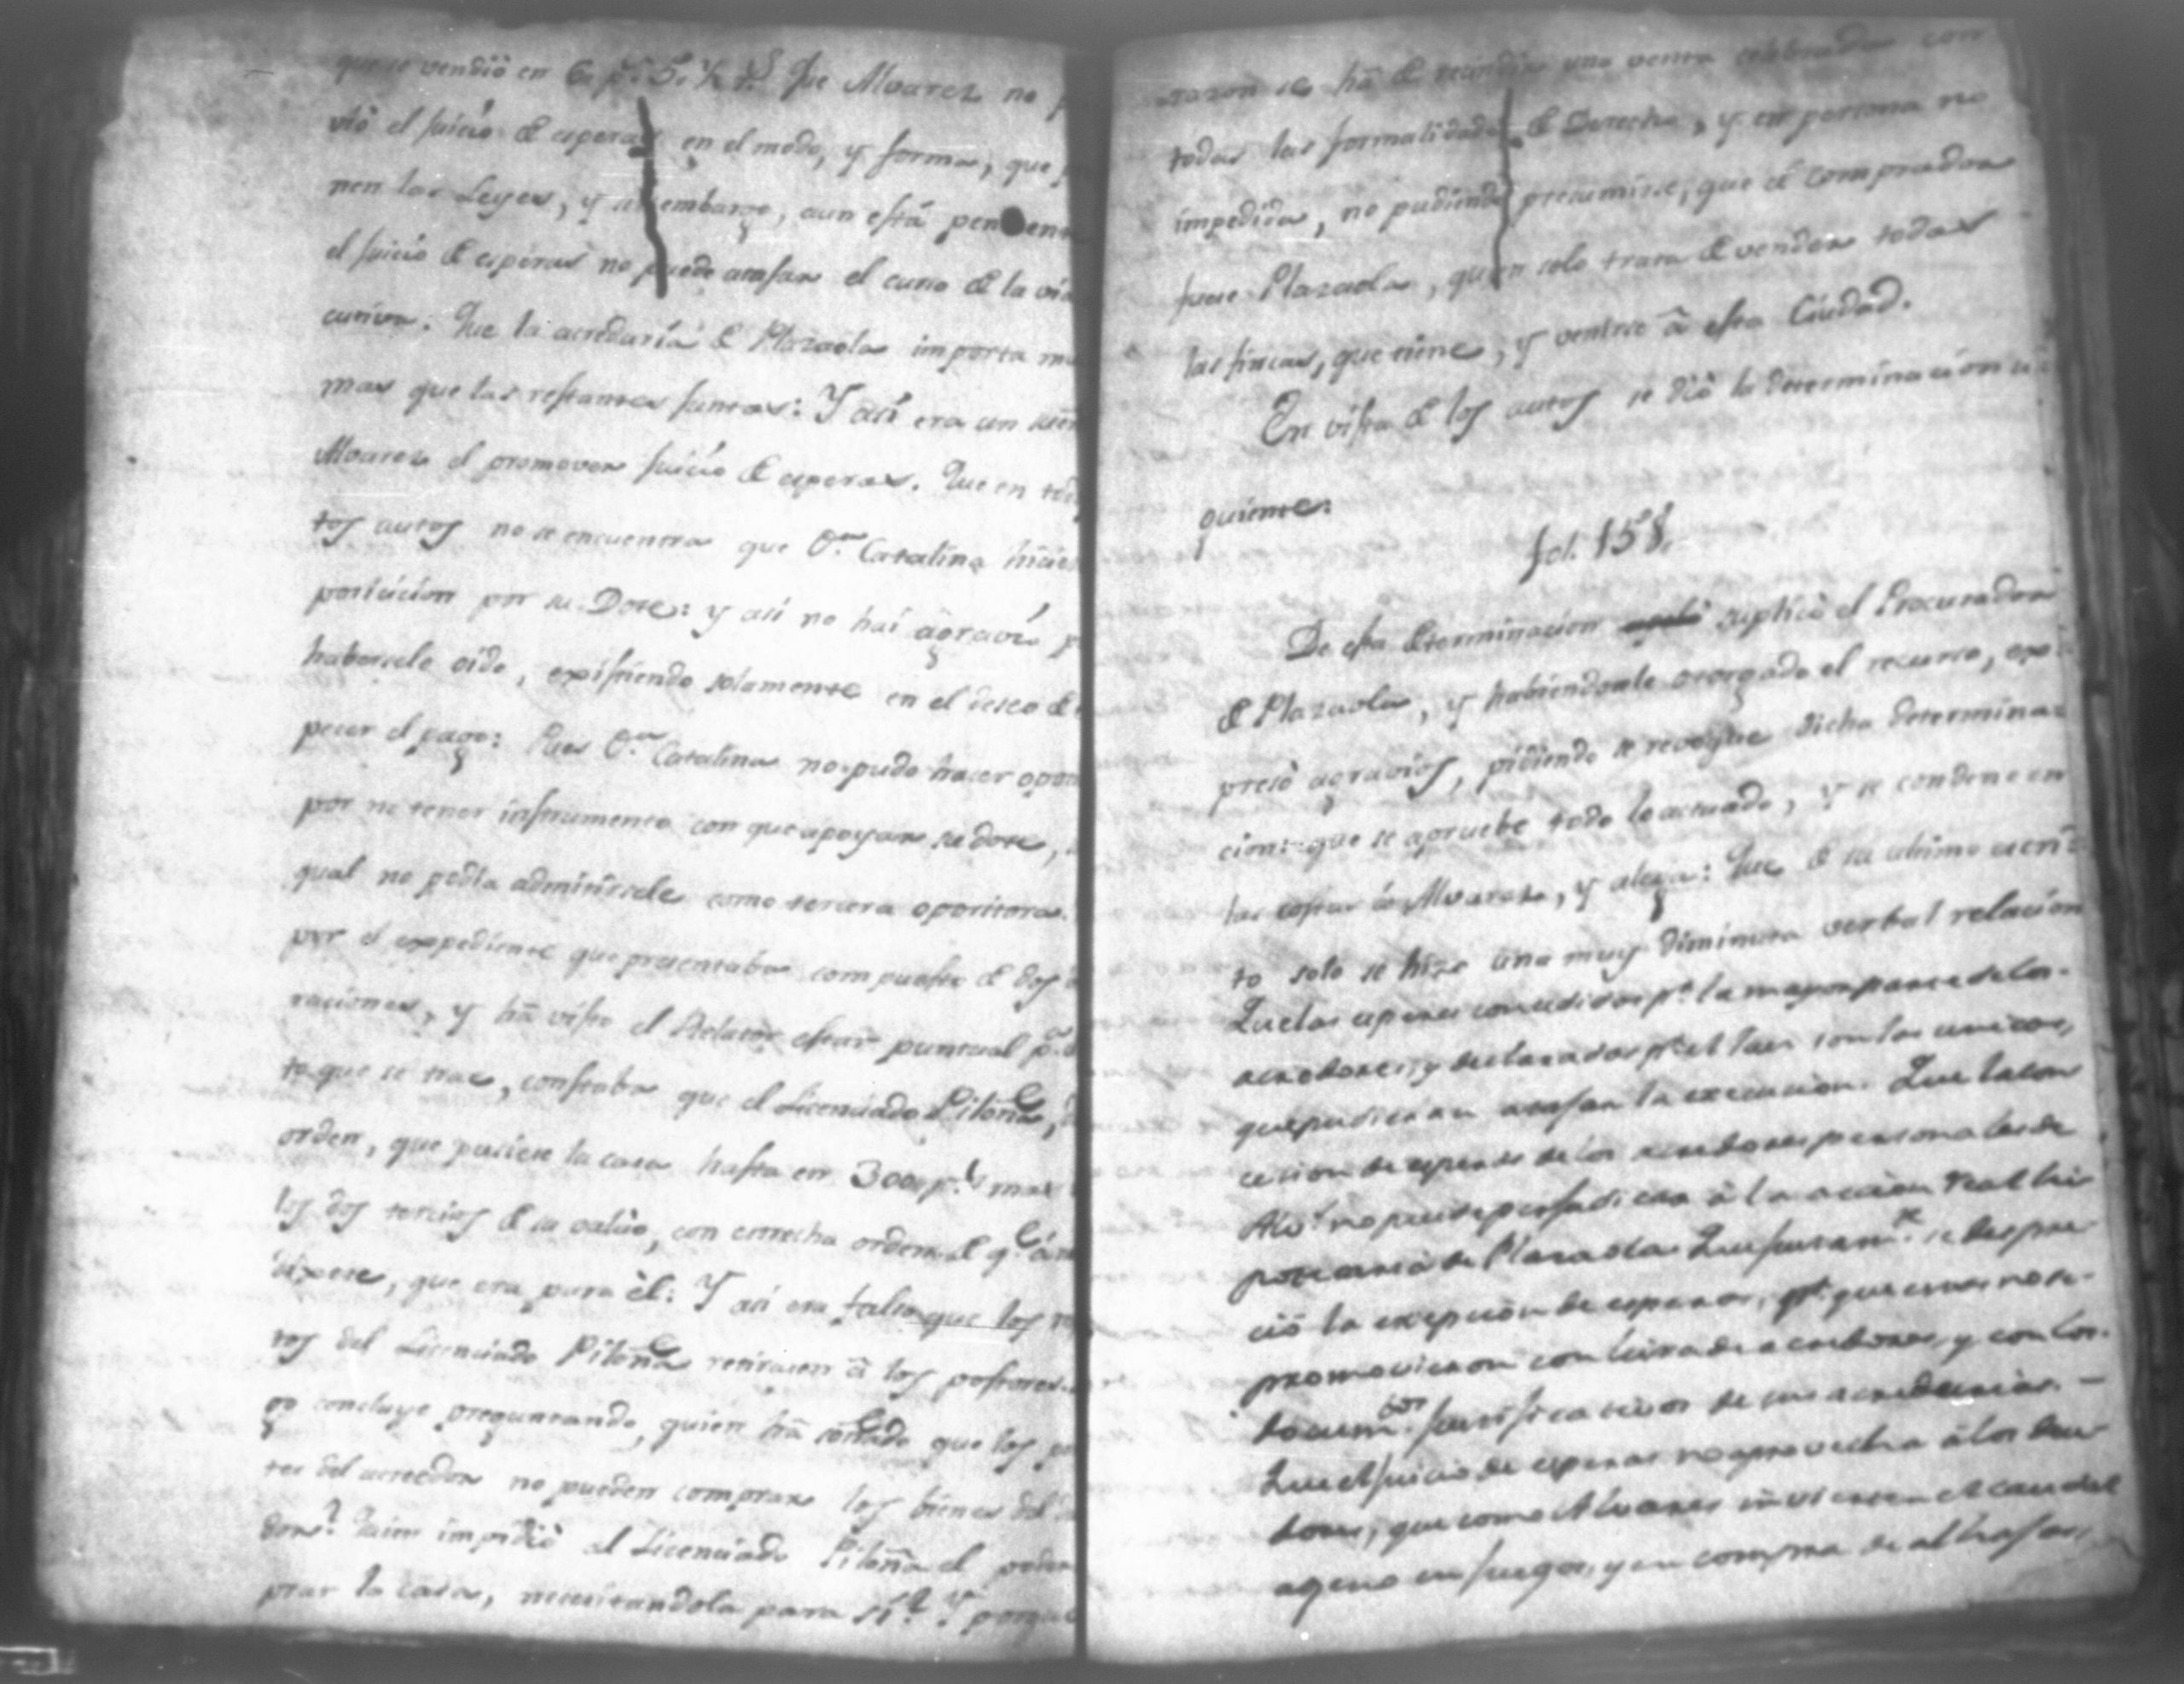 que se vendió en 6. p.s 5. ½ r.s Que Alvarez no
vió el juicio de esperas en el modo, y forma, que
nen las Leyes, y sin embargo, aun está
el juicio de esperas no puede atrasar el curso de la via
cutiva. Que la acredaría de Plazaola importa
mas que las restantes juntas: Y asi era un
Alvarez el promover juicio de esperas. Que en
tos autos no se encuentra que D.a Catalina
posicion por su Dote: y asi no hai agravio
haversele oido, existiendo solamente en el deseo de
pecer el pago: Pues D.a Catalina no pudo hacer
por no tener instrumento con que apoyar su dote,
qual no podia admitirsele como tercera opositora.
por el expediente que presentaba compuesto de dos
raciones, y hà visto el Relator estar puntual
to que se trae, constaba que el Licenciado Piloña,
orden, que pusiese la casa hasta en 300 p.s mas
los dos tercios de su valor, con estrecha orden de q.e
dixese, que era para èl: Y asi era falso que los
tos del Licenciado Piloña retirasen à los postores.
go concluye preguntando, quien hà soñado que los
tes del acreedor no pueden comprar los bienes del
dor? Quien impidió al Licenciado Piloña el
prar la casa, necesitandola para sí? Y porque
razon se hà de recindir una venta celebrada con
todas las formalidades de Derecho, y en persona no
impedida, no pudiendo presumirse, que el comprador
fuese Plazaola, quien solo trata de vender todas
las fincas, que tiene, y venirse à esta Ciudad.
En vista de los autos se dió la determinacion si
guiente:
fol. 158.
De esta determinacion suplicó el Procurador
de Plazaola, y habiendosele otorgado el recurso, ex
presó agravios, pidiendo se revoque dicha determina
cion: que se apruebe todo lo actuado, y se condene en
las costas à Alvarez, y alega: Que de su ultimo escri
to solo se hizo una muy diminuta verbal relacion
Que las esperas concedidas p.r la mayor parte de los
acredores, y declaradas p.r el Juez son las unicas,
que pudieran atrasar la execucion. Que la con
cecion de esperas de los acredores personales de
Alv.z no puede perjudicar à la accion real hi
potecaria de Plazaola. Que justam.te se despre
ció la exepción de esperas, p.r que estas no se
promovieron con lista de acredores, y con los
docum.tos justificativos de sus acredencias. –
Que el juicio de esperas no aprovecha à los deu
dores, que como Alvarez invierten el caudal
ageno en juegos, y en compra de alhajas,